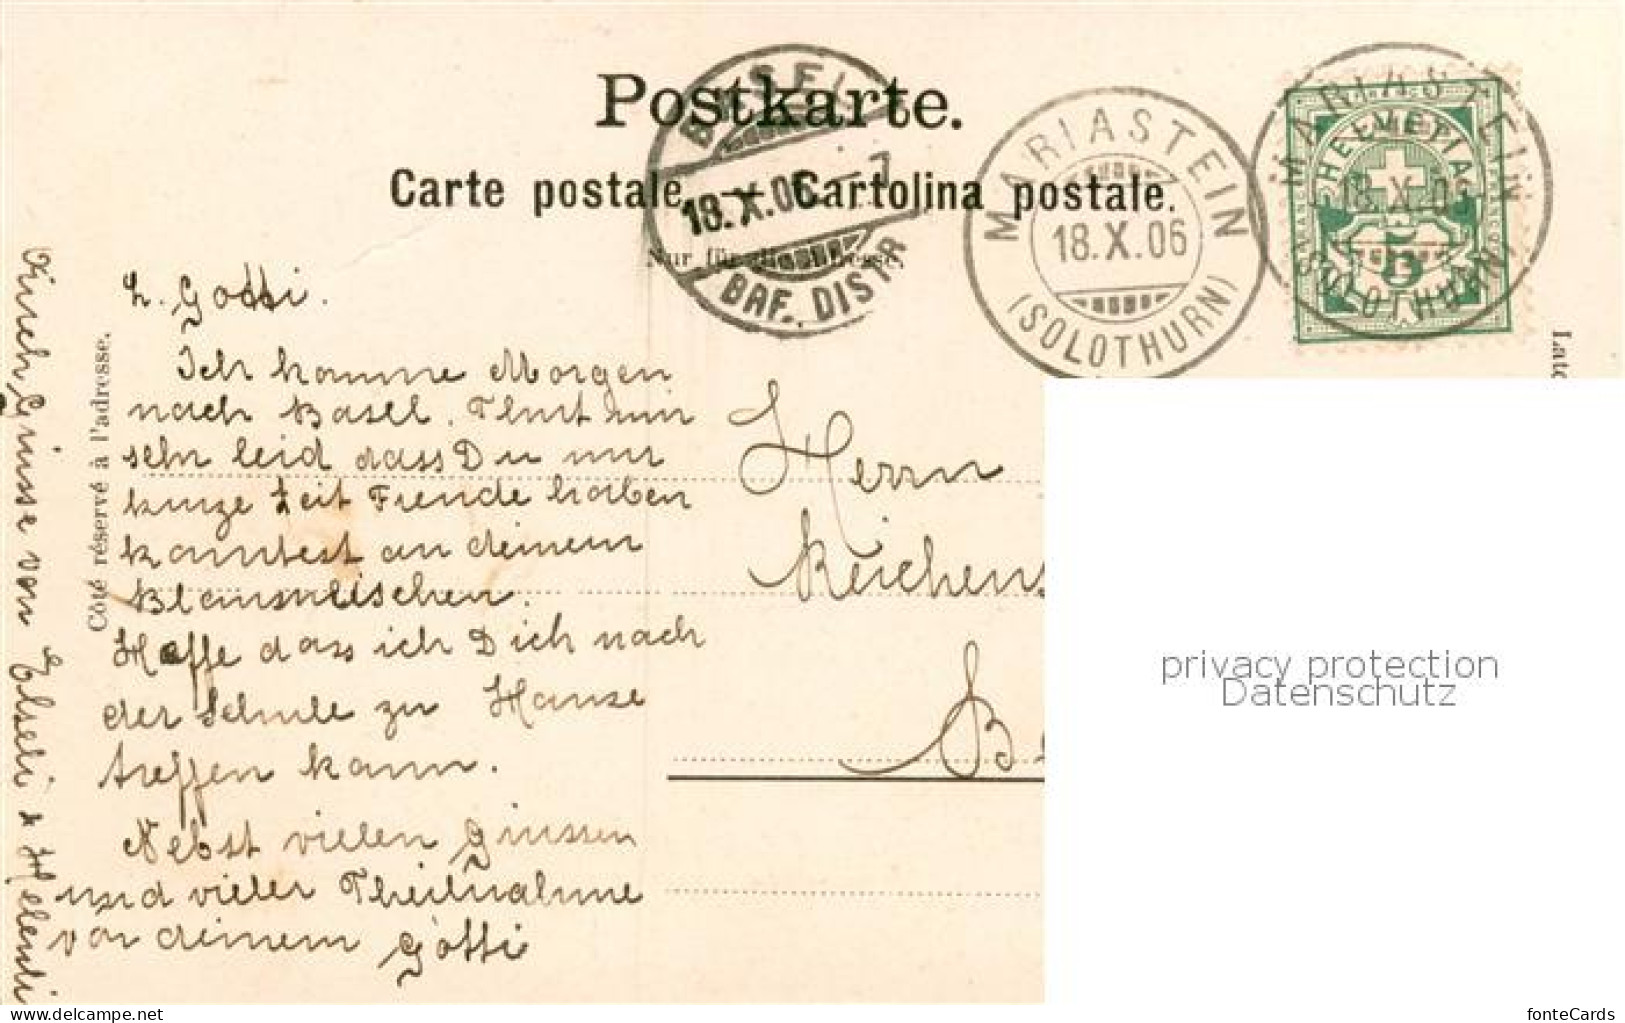 Postkarte.
Carte postale. — Cartolina postale.
Nur für die Adresse.
BASEL
18.X.06. - 7
BRF. DISTR
MARIASTEIN
18.X.06
(SOLOTHURN)
MARIASTEIN
18.X.06
(SOLOTHURN)
HELVETIA
5
Côté réservé à l'adresse.
L. Gotti.
Ich komme Morgen
nach Basel. Thut mir
sehr leid dass Du nur
kurze Zeit Freude haben
konntest an deinem
Hoffe dass ich Dich nach
der Schule zu Hause
treffen kann.
Nebst vielen Grüssen
und vieler Theilnahme
von deinem Götti
Grüsse von Elseli & Heleneli
Herrn
privacy protection
Datenschutz
www.delcampe.net
fonteCards